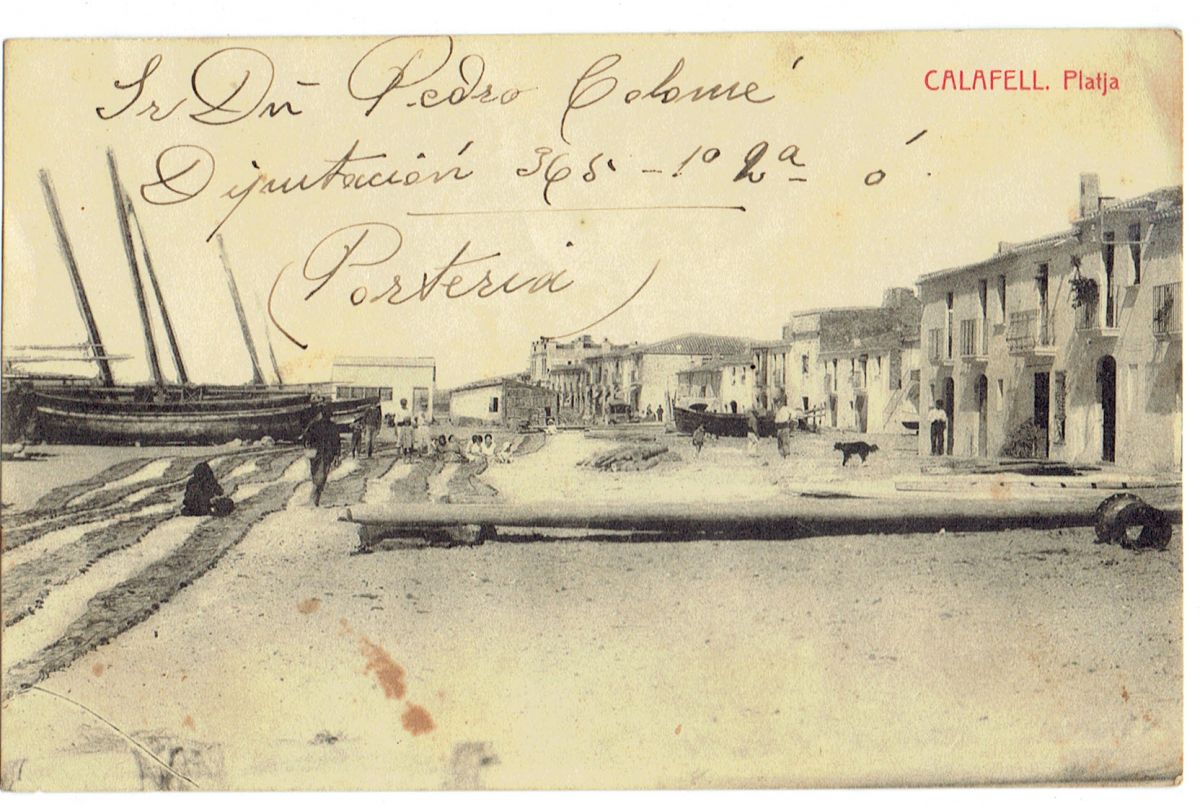 CALAFELL. Platja
Sr Dn̄ Pedro Colomé
Diputación 365 - 1º 2ª ó
(Porteria)